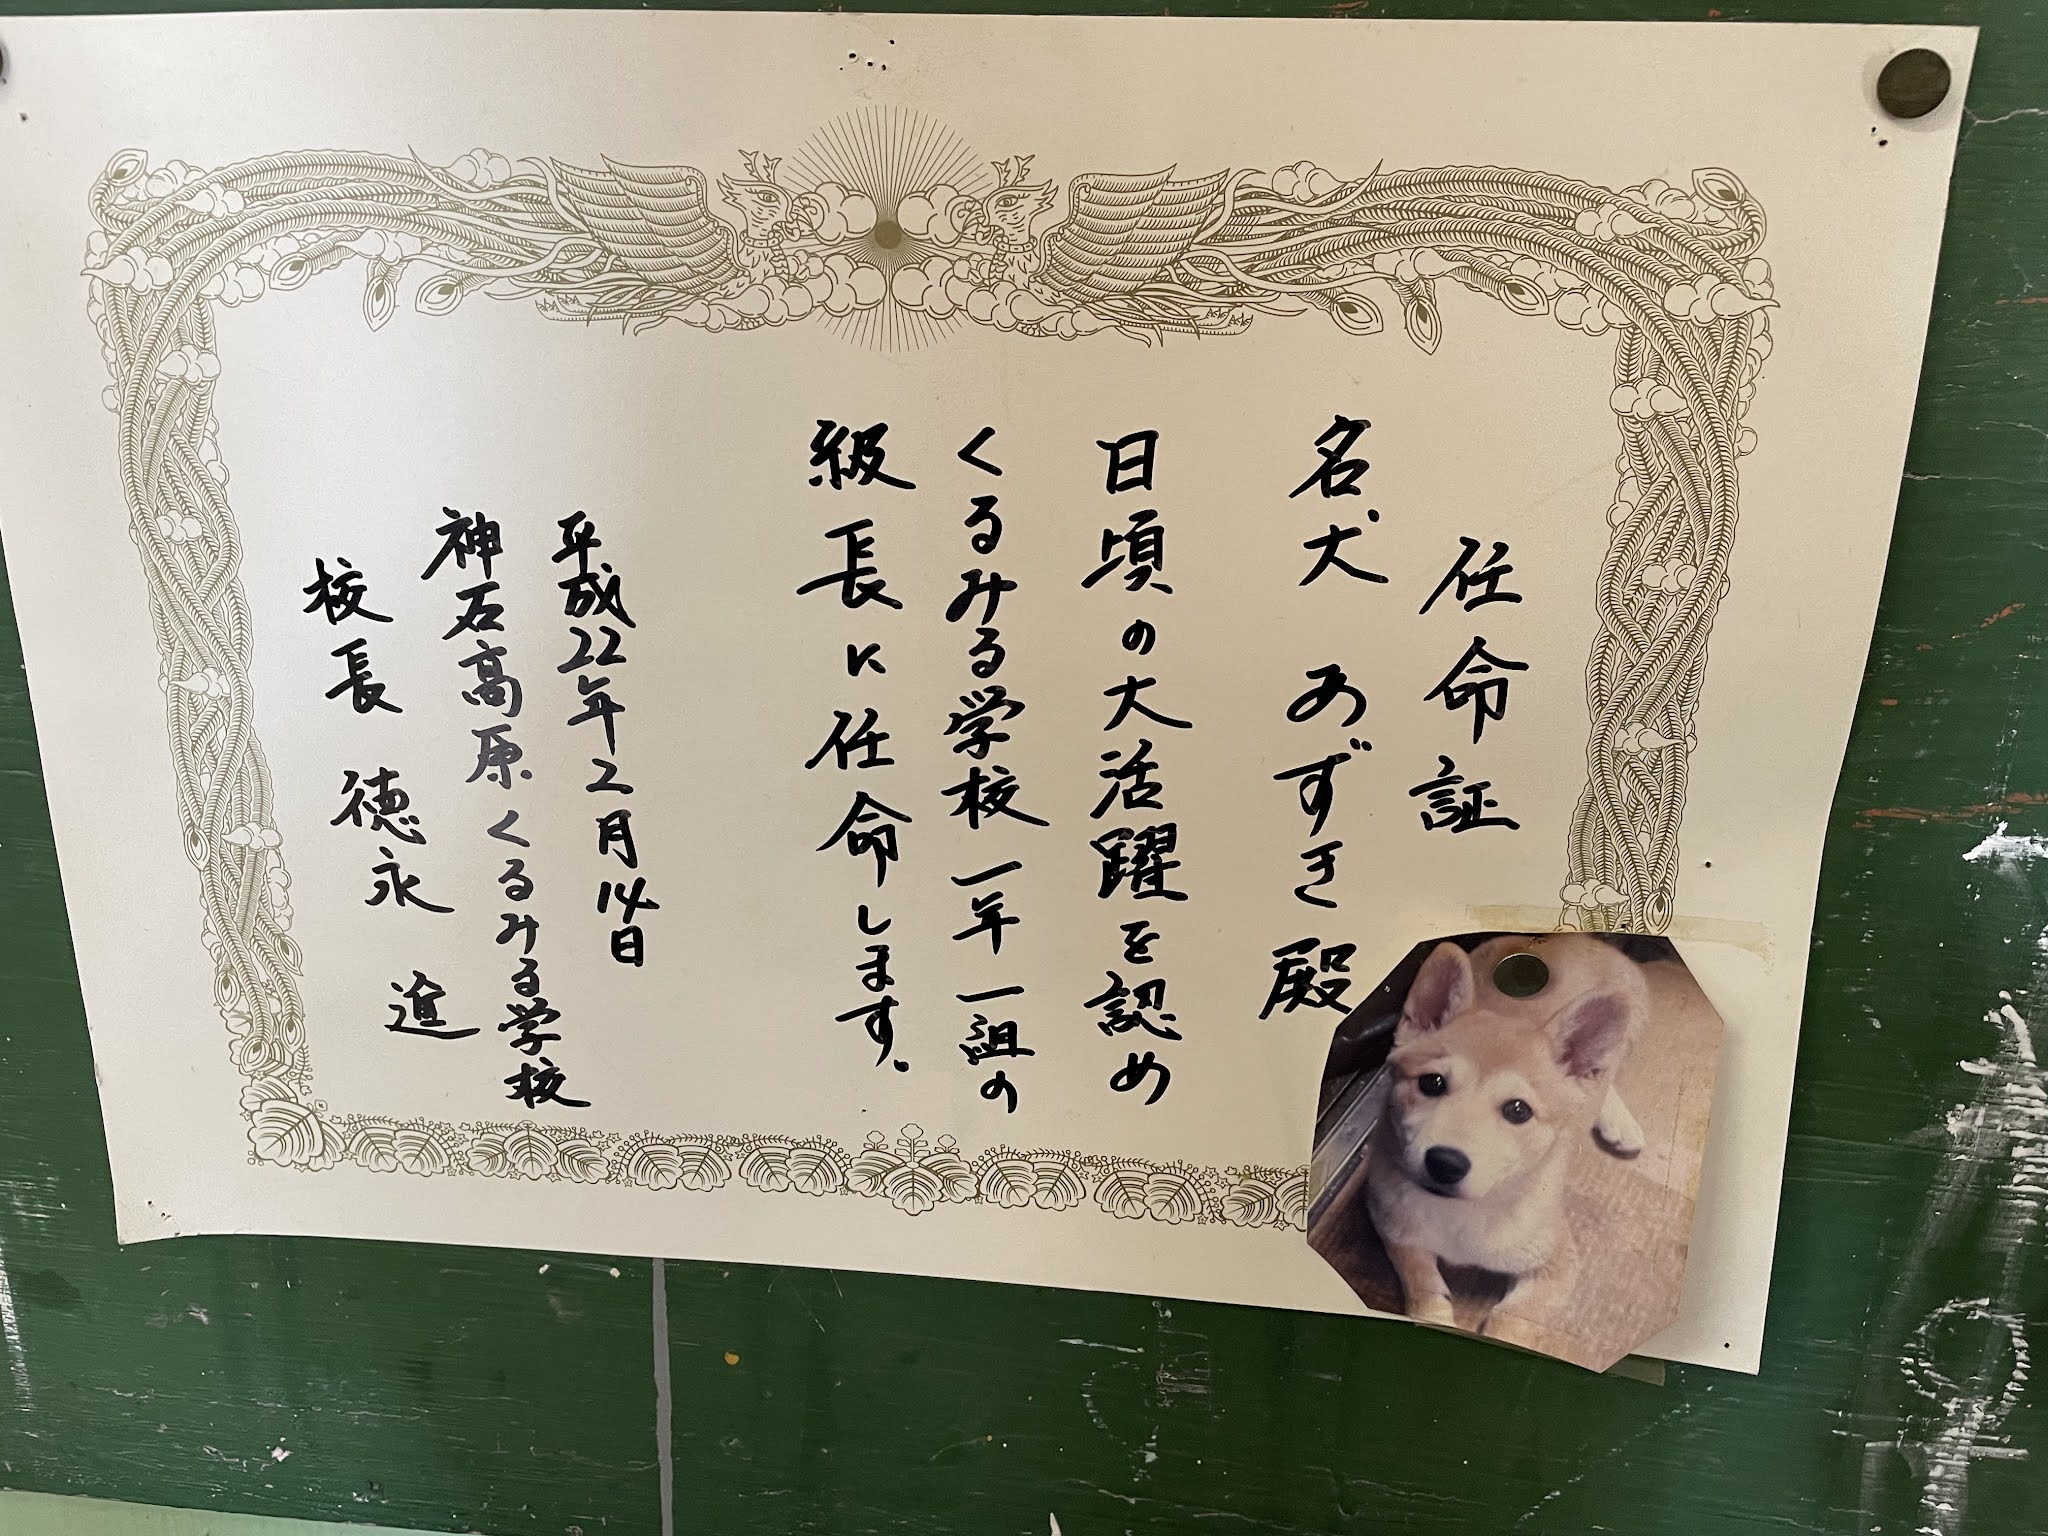 任命証
名犬 あずき殿
日頃の大活躍を認め
くるみる学校 一年一組の
級長に任命します。
平成22年2月14日
神石高原くるみる学校
校長 徳永 進